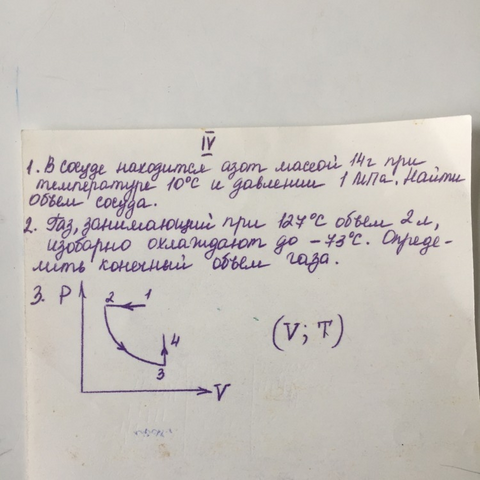 IV
1. В сосуде находится азот массой 14г при
температуре 10°С и давлении 1 МПа. Найти
объем сосуда.
2. Газ, занимающий при 127°С объем 2 л,
изобарно охлаждают до -73°С. Опреде-
лить конечный объем газа.
3. P
2 1
4
3
V
(V; T)